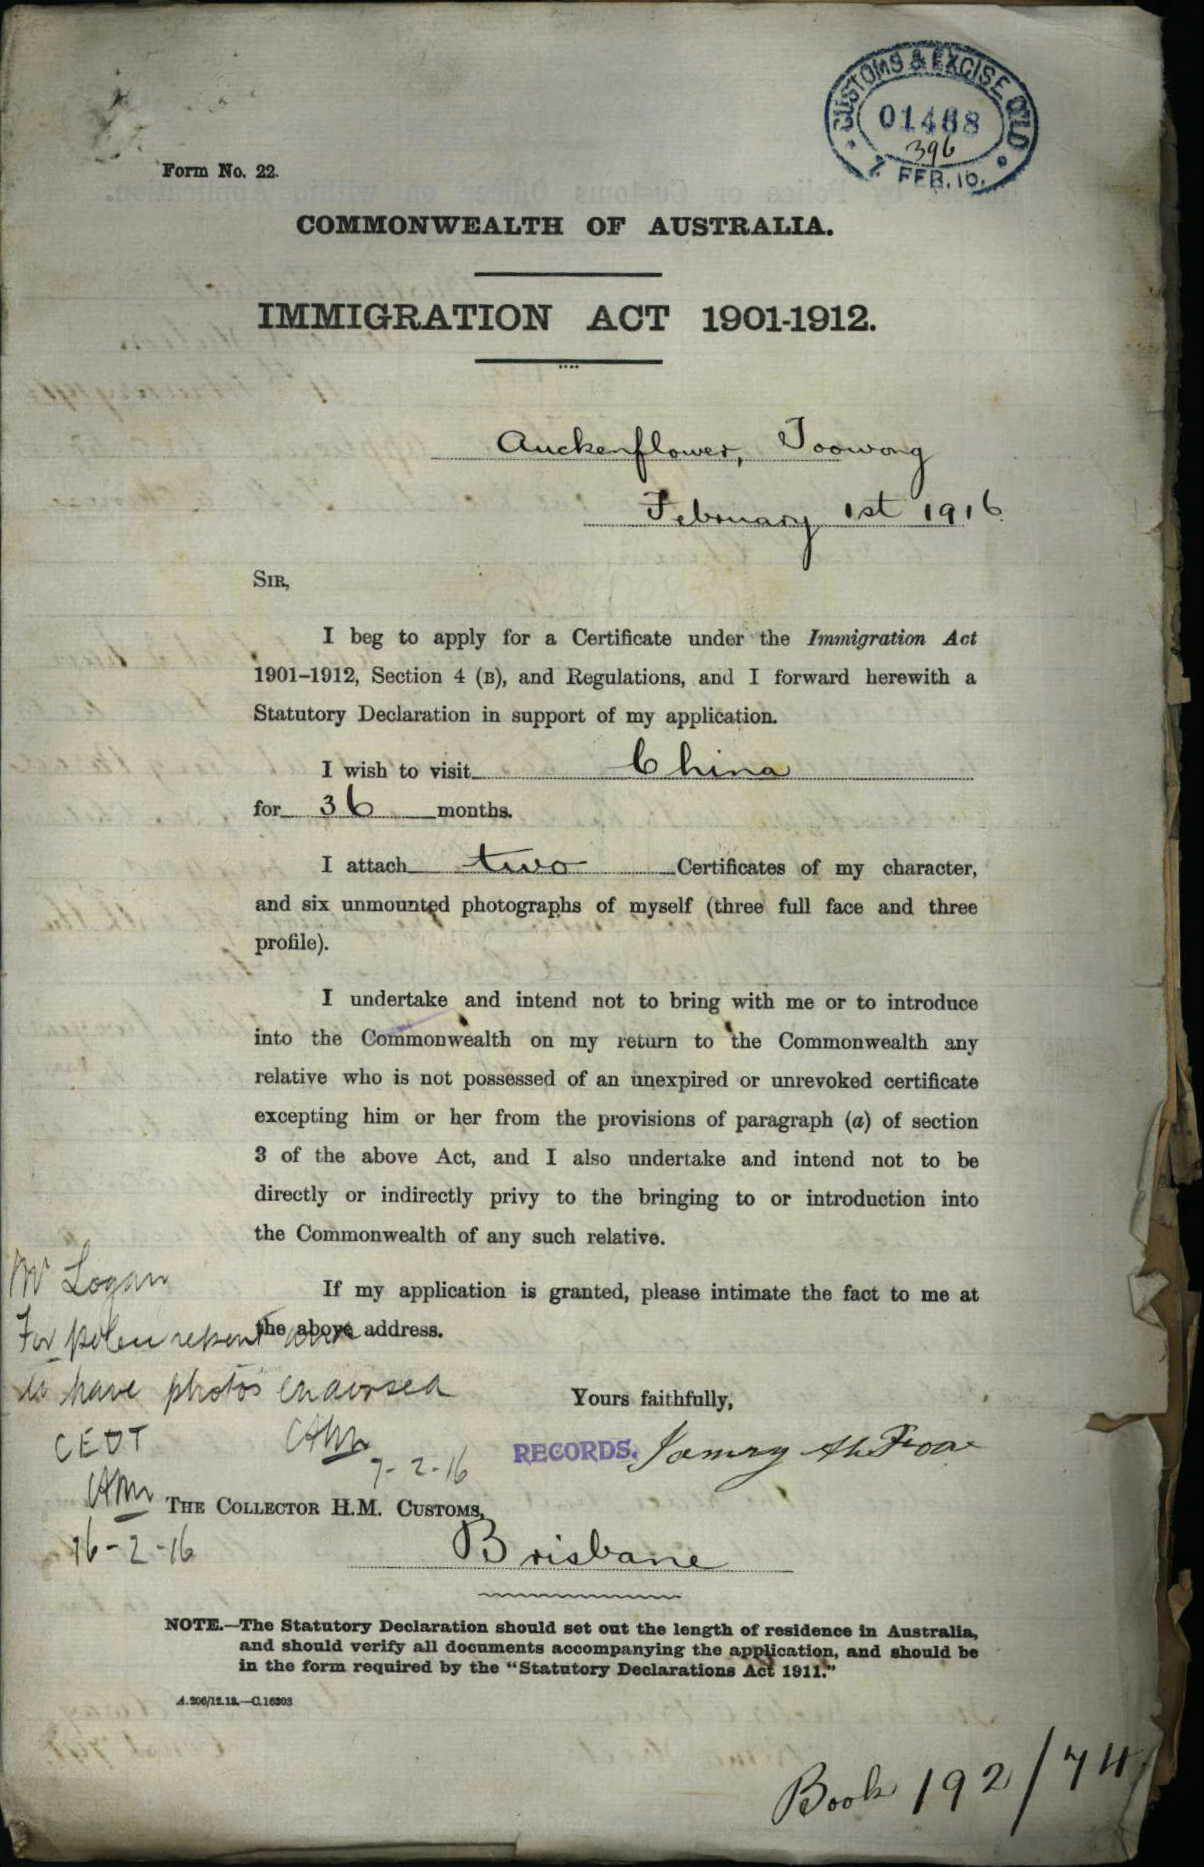 CUSTOMS & EXCISE QLD
01468
396
7 FEB. 16.
Form No. 22.
COMMONWEALTH OF AUSTRALIA.
IMMIGRATION ACT 1901-1912.
Auckenflower, Toowong
February 1st 1916
SIR,
I beg to apply for a Certificate under the Immigration Act
1901-1912, Section 4 (B), and Regulations, and I forward herewith a
Statutory Declaration in support of my application.
I wish to visit China
for 36 months.
I attach two Certificates of my character,
and six unmounted photographs of myself (three full face and three
profile).
I undertake and intend not to bring with me or to introduce
into the Commonwealth on my return to the Commonwealth any
relative who is not possessed of an unexpired or unrevoked certificate
excepting him or her from the provisions of paragraph (a) of section
3 of the above Act, and I also undertake and intend not to be
directly or indirectly privy to the bringing to or introduction into
the Commonwealth of any such relative.
If my application is granted, please intimate the fact to me at
the above address.
Mr Logan
For police report and
to have photos endorsed
CEDT
7-2-16
16-2-16
Yours faithfully,
RECORDS. Ah Foo
THE COLLECTOR H.M. CUSTOMS,
Brisbane
NOTE.—The Statutory Declaration should set out the length of residence in Australia,
and should verify all documents accompanying the application, and should be
in the form required by the "Statutory Declarations Act 1911."
A.206/12.13.—C.16303
Book 192/74